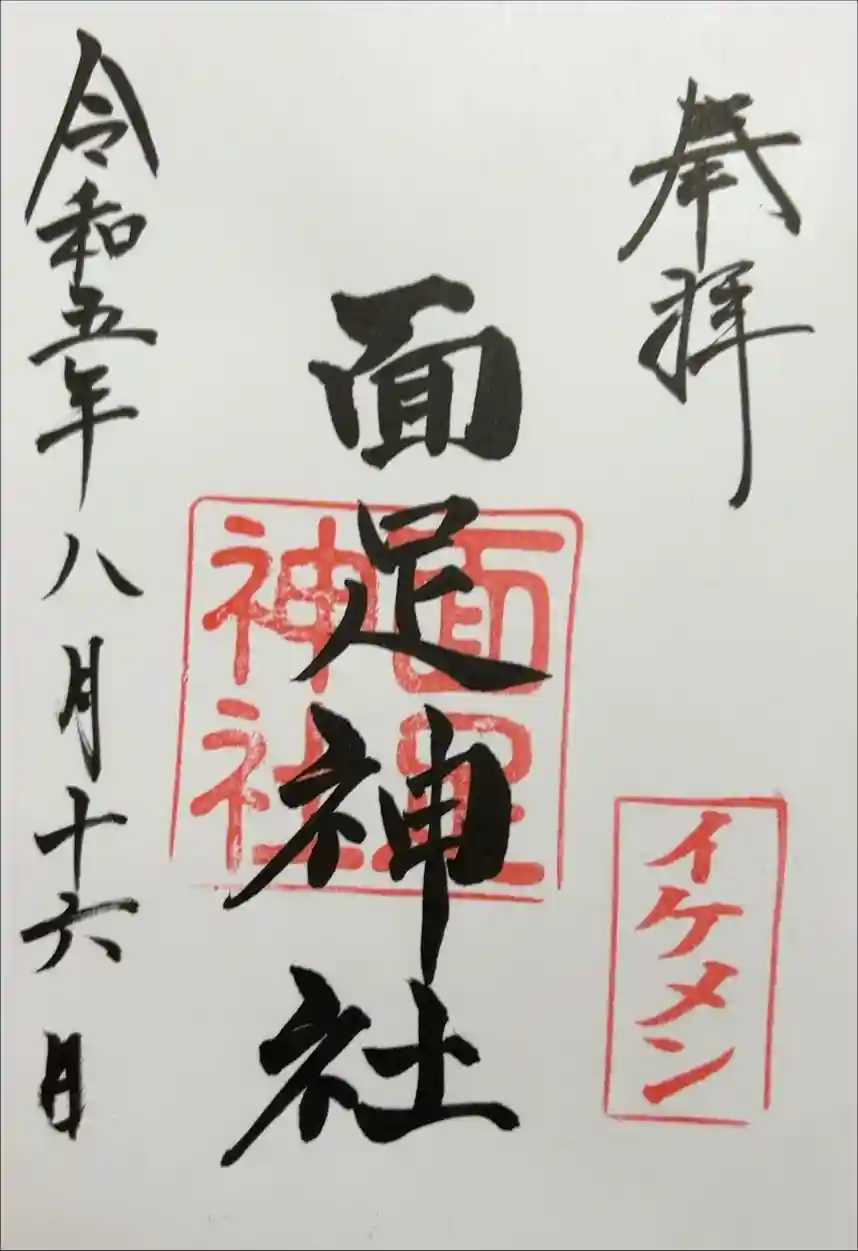 奉拝
イケメン
面足神社
面足
神社
令和五年八月十六日